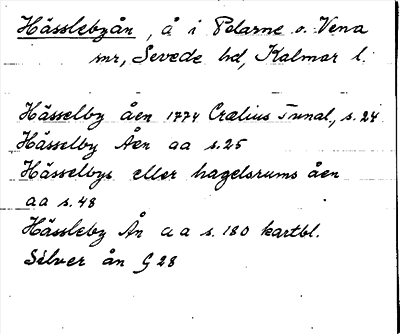 Hässlebyån, å i Pelarne o. Vena
snr, Sevede hd, Kalmar l.
Hässelby åen 1774 Crælius Tunal, s. 24
Hässelby Åen aa s. 25
Hässelbys eller hagelsrums åen
aa s. 48
Hässleby Ån aa s. 180 kartbl.
Silver ån G 28